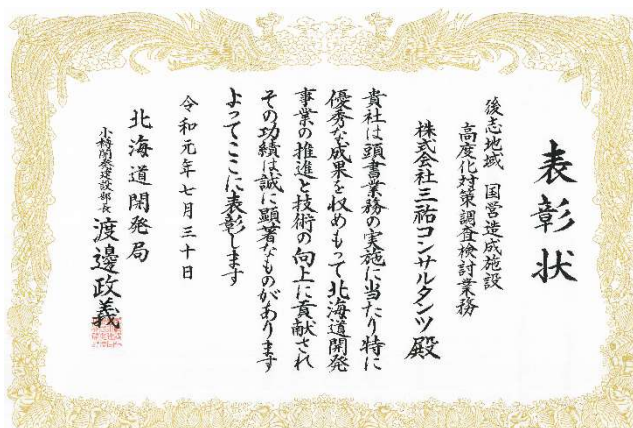 表彰状
後志地域 国営造成施設
高度化対策調査検討業務
株式会社三祐コンサルタンツ殿
貴社は頭書業務の実施に当たり特に
優秀な成果を収めもって北海道開発
事業の推進と技術の向上に貢献され
その功績は誠に顕著なものがあります
よってここに表彰します
令和元年七月三十日
北海道開発局
小樽開発建設部長 渡邊政義